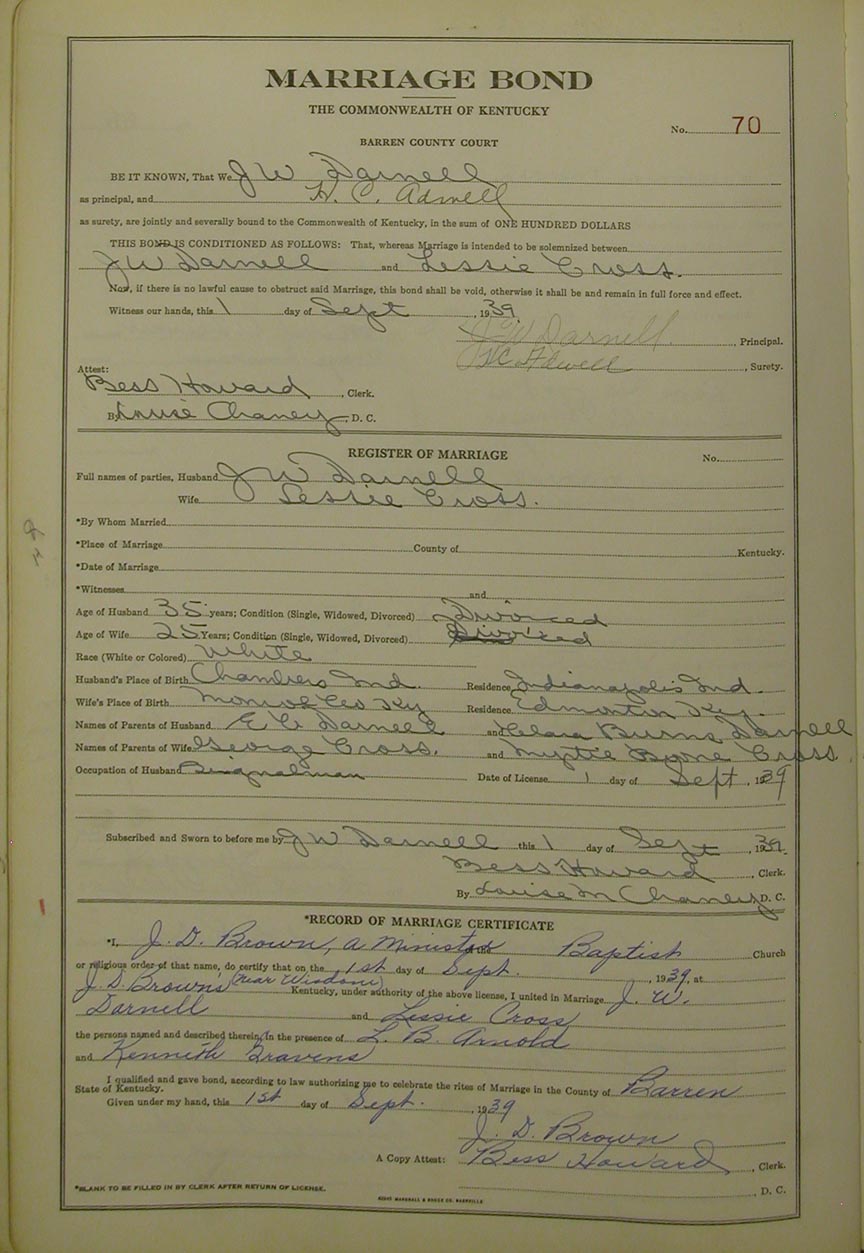 MARRIAGE BOND
THE COMMONWEALTH OF KENTUCKY
No. 70
BARREN COUNTY COURT
BE IT KNOWN, That We J W Darnell
as principal, and H. C.
as surety, are jointly and severally bound to the Commonwealth of Kentucky, in the sum of ONE HUNDRED DOLLARS
THIS BOND IS CONDITIONED AS FOLLOWS: That, whereas Marriage is intended to be solemnized between
J W Darnell and Lessie Cross.
Now, if there is no lawful cause to obstruct said Marriage, this bond shall be void, otherwise it shall be and remain in full force and effect.
Witness our hands, this 1 day of Sept, 1939.
J W Darnell, Principal.
H C, Surety.
Attest:
Bess Howard, Clerk.
By Louise Chaney, D. C.
REGISTER OF MARRIAGE No.
Full names of parties, Husband J W Darnell
Wife Lessie Cross.
*By Whom Married
*Place of Marriage County of Kentucky.
*Date of Marriage
*Witnesses and
Age of Husband 35 years; Condition (Single, Widowed, Divorced) Divorced
Age of Wife 25 Years; Condition (Single, Widowed, Divorced) Divorced
Race (White or Colored) White
Husband's Place of Birth Chambers Ind. Residence Indianapolis Ind.
Wife's Place of Birth Monroe Co Ky Residence Edmonton Ky.
Names of Parents of Husband E C Darnell and Clara Burns Darnell
Names of Parents of Wife George Cross. and Myrtle Cross
Occupation of Husband Signalman Date of License 1 day of Sept, 1939
Subscribed and Sworn to before me by J W Darnell this 1 day of Sept, 1939.
Bess Howard, Clerk.
By Louise M Chaney D. C.
*RECORD OF MARRIAGE CERTIFICATE
*I, J. D. Brown, a Minister of Baptist Church
or religious order of that name, do certify that on the 1st day of Sept., 1939, at
J. D. Browns (near Wisdom) Kentucky, under authority of the above license, I united in Marriage J. W.
Darnell and Lessie Cross
the persons named and described therein, in the presence of L. B. Arnold
and Kenneth Bravens
I qualified and gave bond, according to law authorizing me to celebrate the rites of Marriage in the County of Barren
State of Kentucky.
Given under my hand, this 1st day of Sept., 1939
J. D. Brown
A Copy Attest: Bess Howard, Clerk.
*BLANK TO BE FILLED IN BY CLERK AFTER RETURN OF LICENSE. D. C.